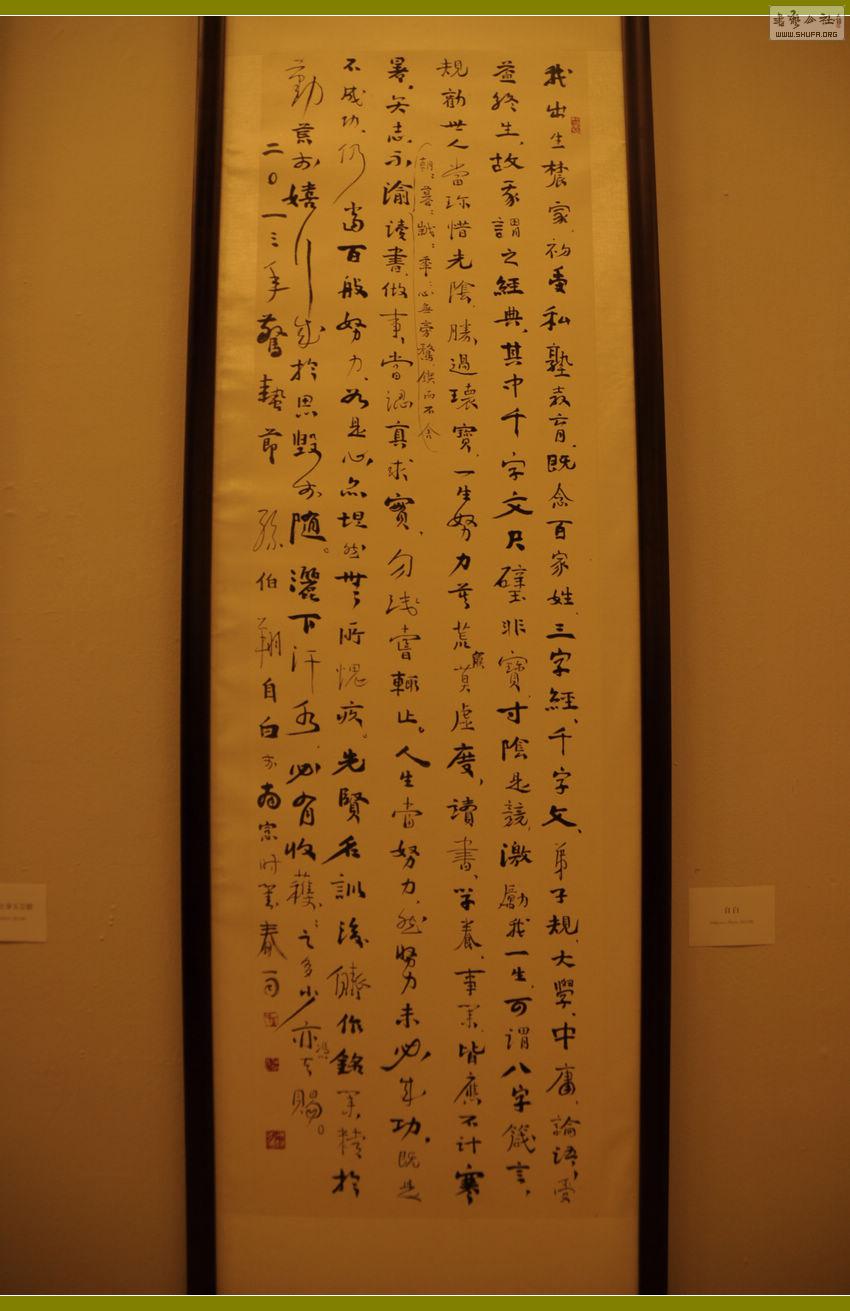 我出生農家初受私塾教育既念百家姓三字經千字文弟子規大學中庸論語受
益終生故家謂之經典其中千字文尺璧非寶寸陰是競激勵我一生可謂八字箴言
規勸世人當珍惜光陰勝過環寶一生努力莫荒莫虛度讀書學養事業皆應不計寒
朝朝暮暮歲歲年年心無旁騖鍥而不舍
暑矢志不渝讀書做事當認真求實勿淺嘗輒止。人生當努力然努力未必成功既是
不成功仍當百般努力如是心亦坦然無所愧疚。先賢名訓後能作銘業精於
勤荒於嬉行成於思毀於隨。灑下汗水必有收穫之多少亦天賜。
二〇一三年驚蟄節 孫伯翔自白於為索時業春雨
自白
書法公社
WWW.SHUFA.ORG